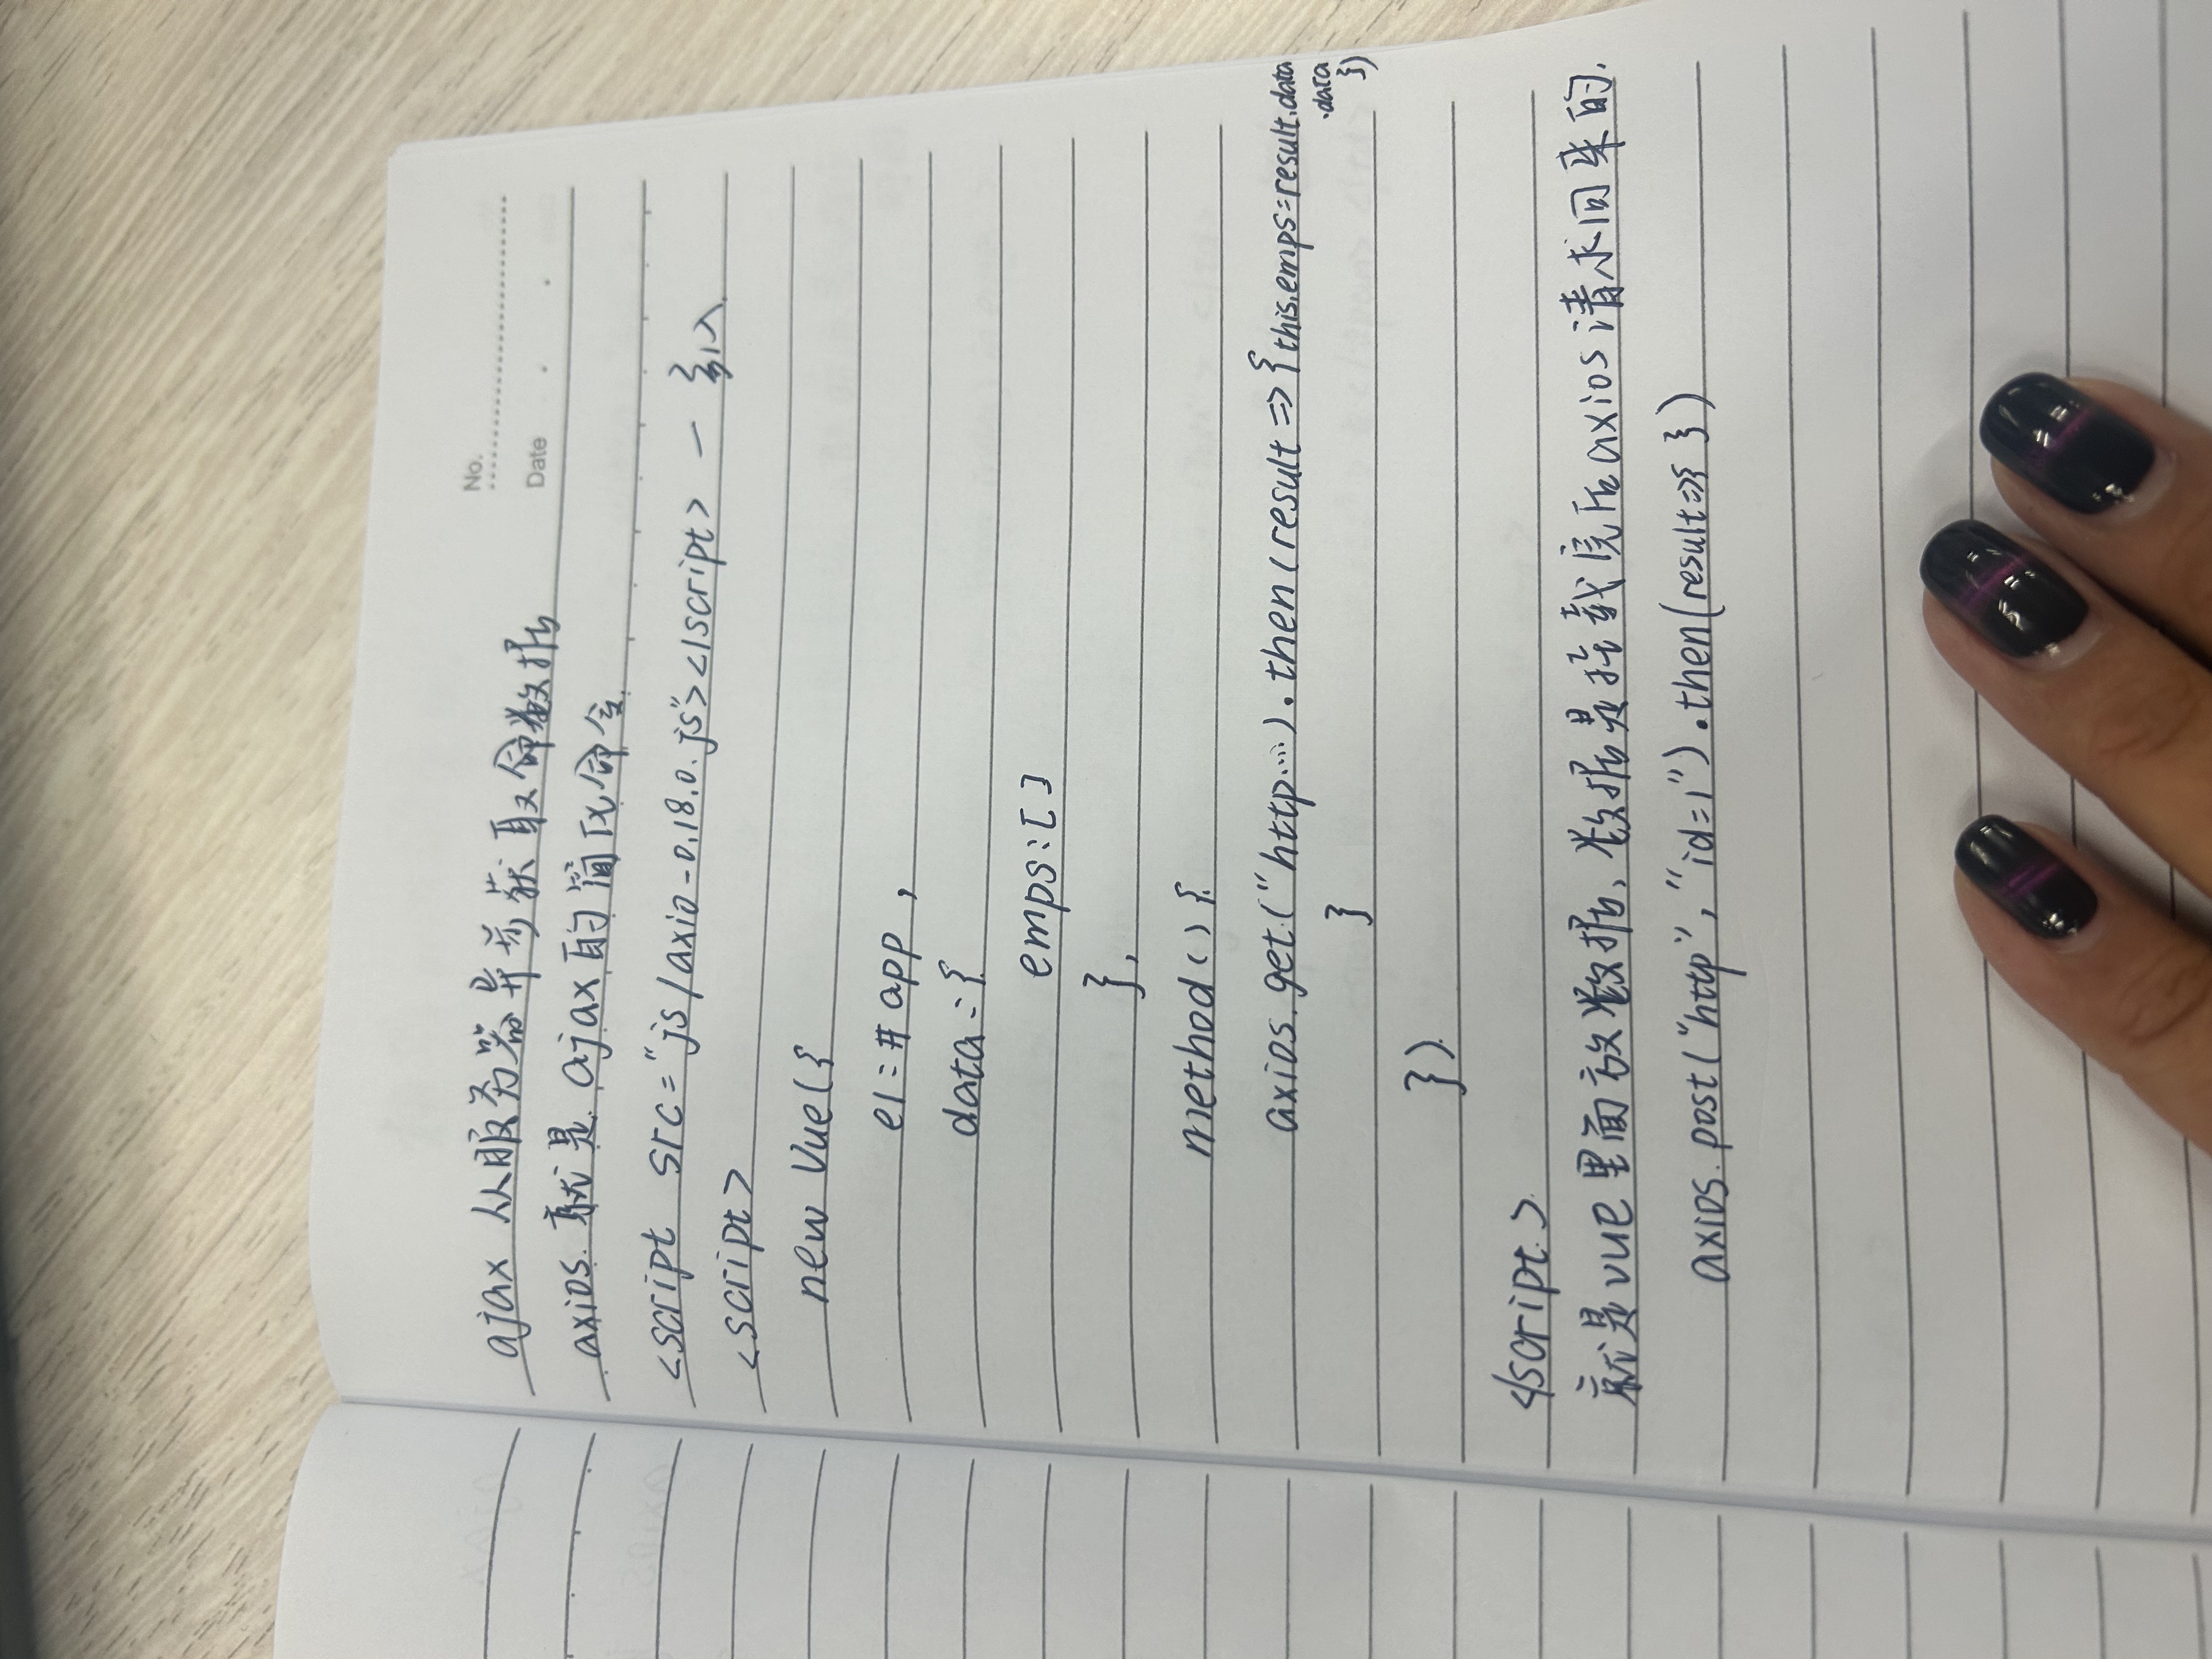 No.
Date
ajax 从服务器异步获取命数据
axios. 就是 ajax的简化命令
<script src="js/axio-0.18.0.js"></script> — 引入
<script>
new Vue({
el:#app ,
data:{
emps:[]
},
method(){
axios.get("http....).then(result=>{this.emps=result.data
.data
})
}
})
</script>
就是vue里面放数据,数据是挂载完后axios请求回来的.
axios.post("http","id=1").then(result=>{ })